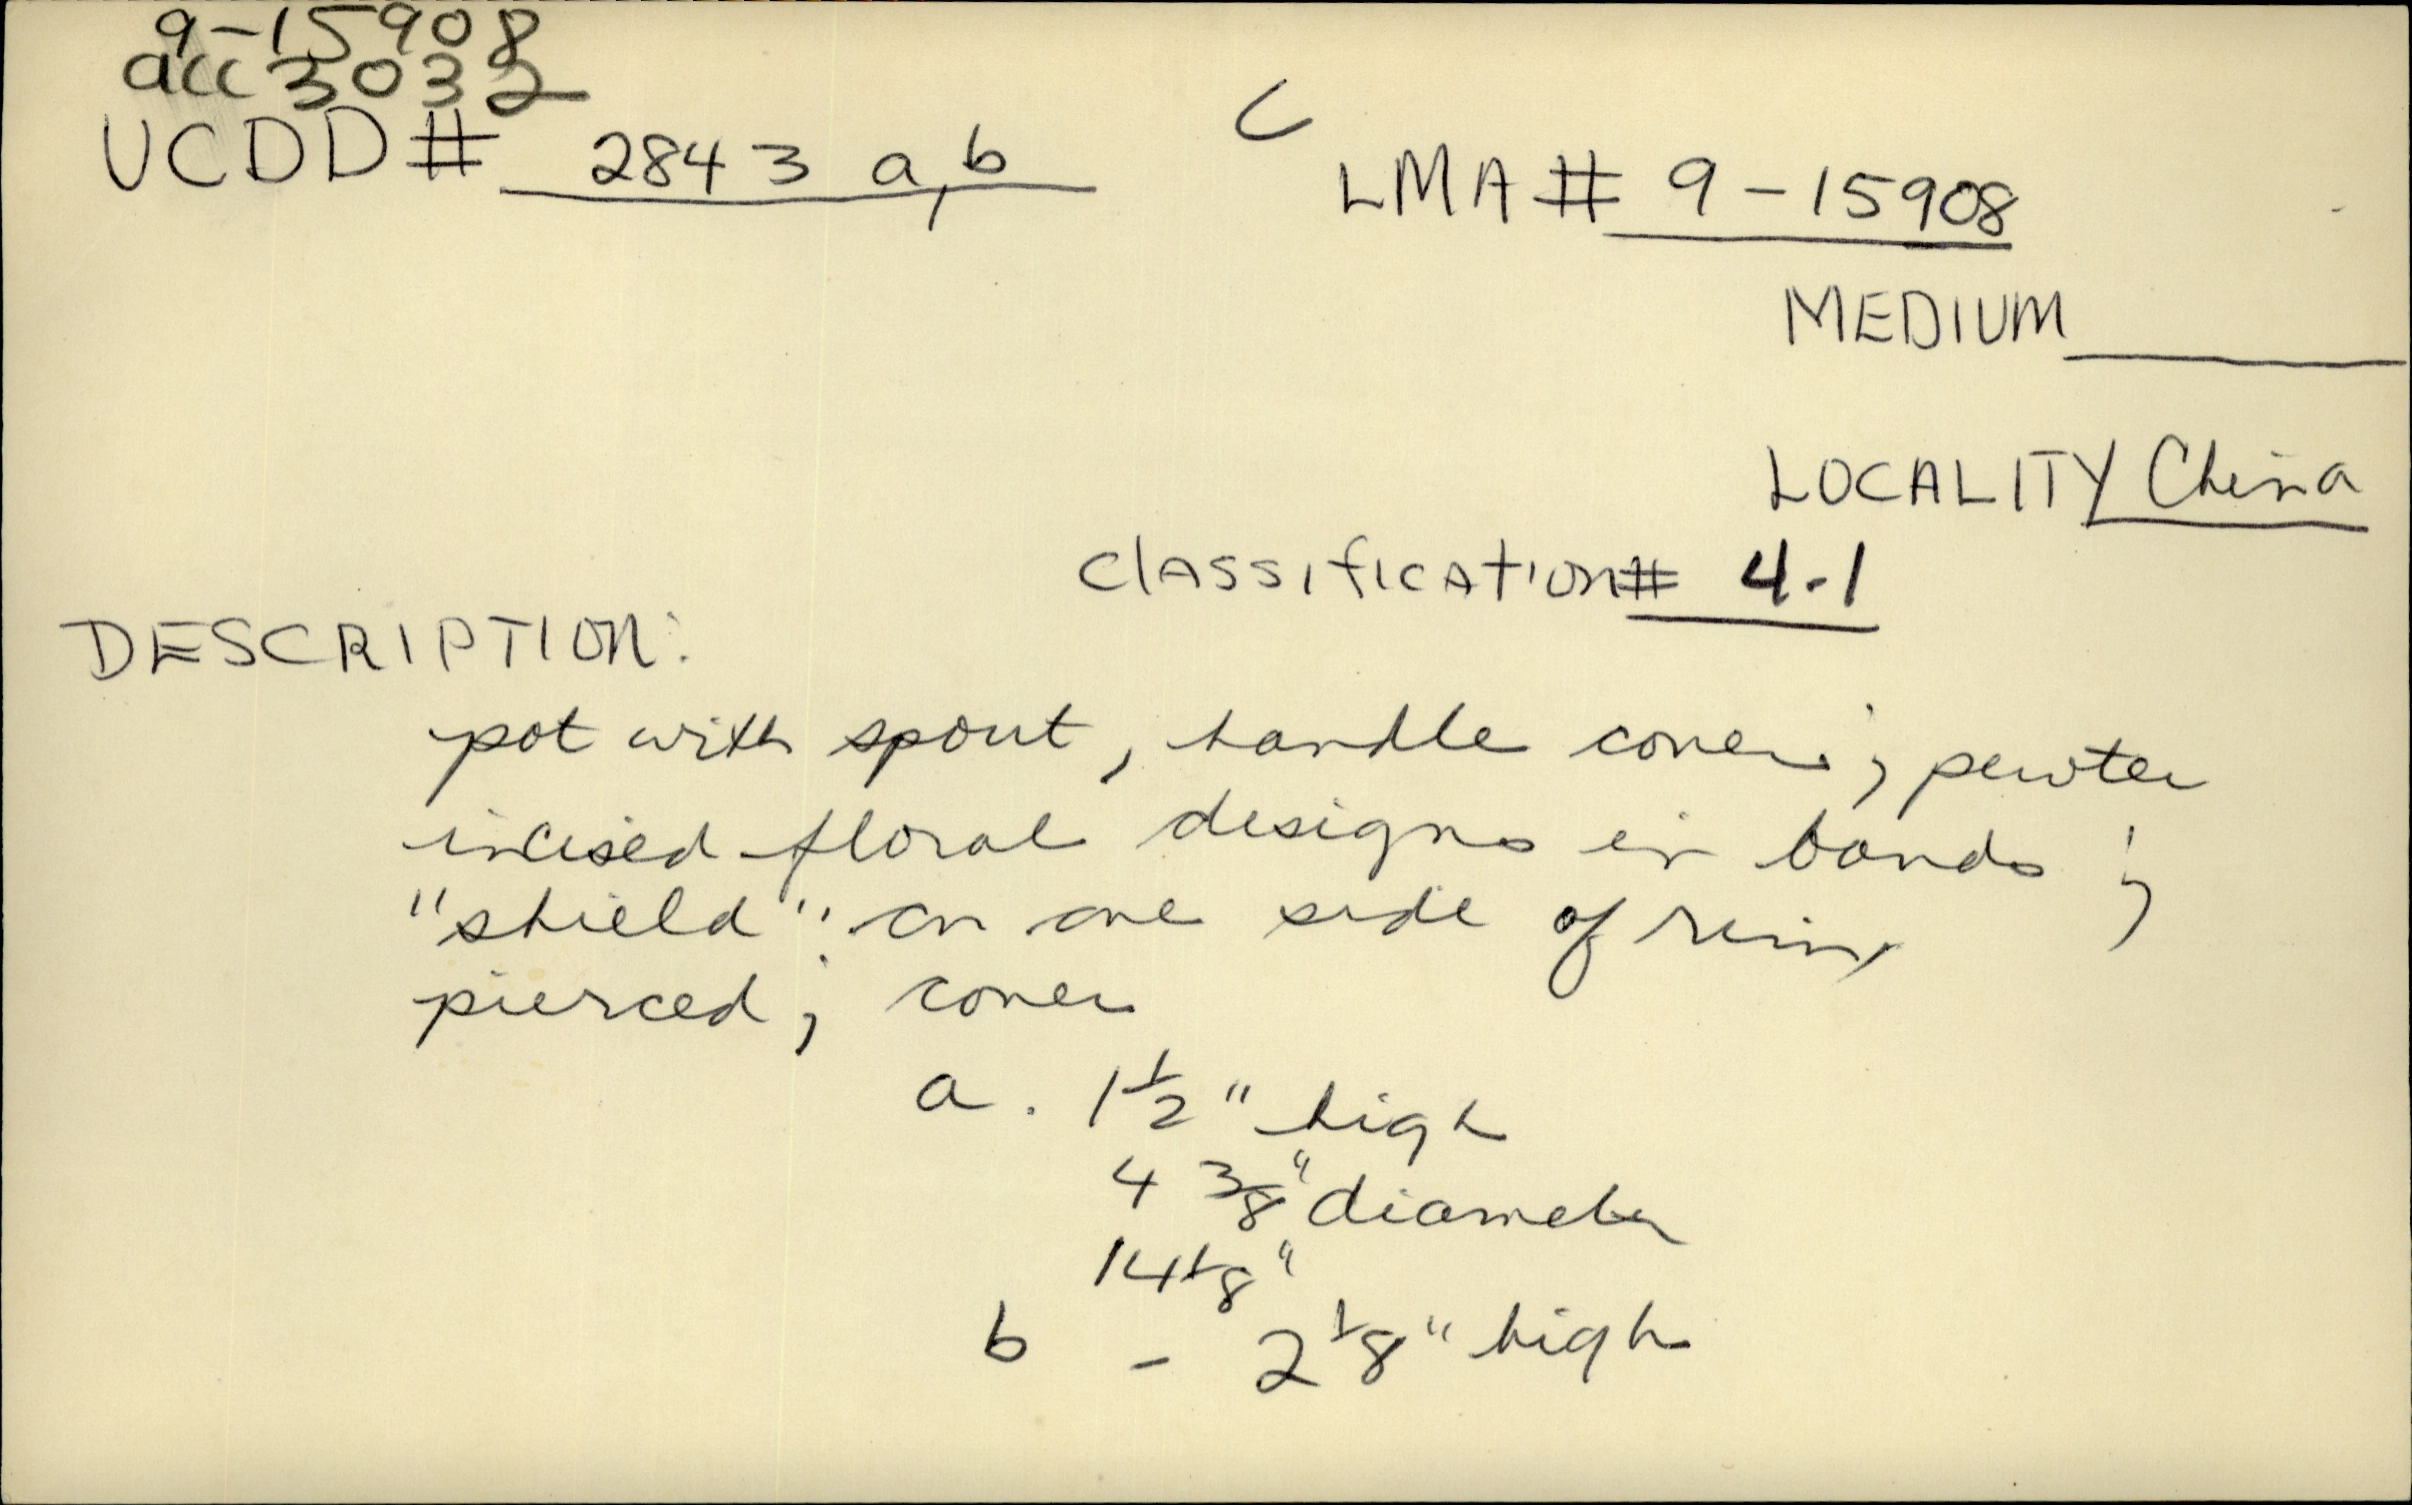 9-15908
acc 3032
UCDD# 2843 a,b
C
LMA# 9-15908
MEDIUM
LOCALITY China
Classification# 4-1
DESCRIPTION:
pot with spout, handle cover; pewter
incised floral designs in bands;
"shield" on one side of rim,
pierced; cover
a. 1 1/2" high
4 3/8" diameter
14 1/8"
b - 2 1/8" high